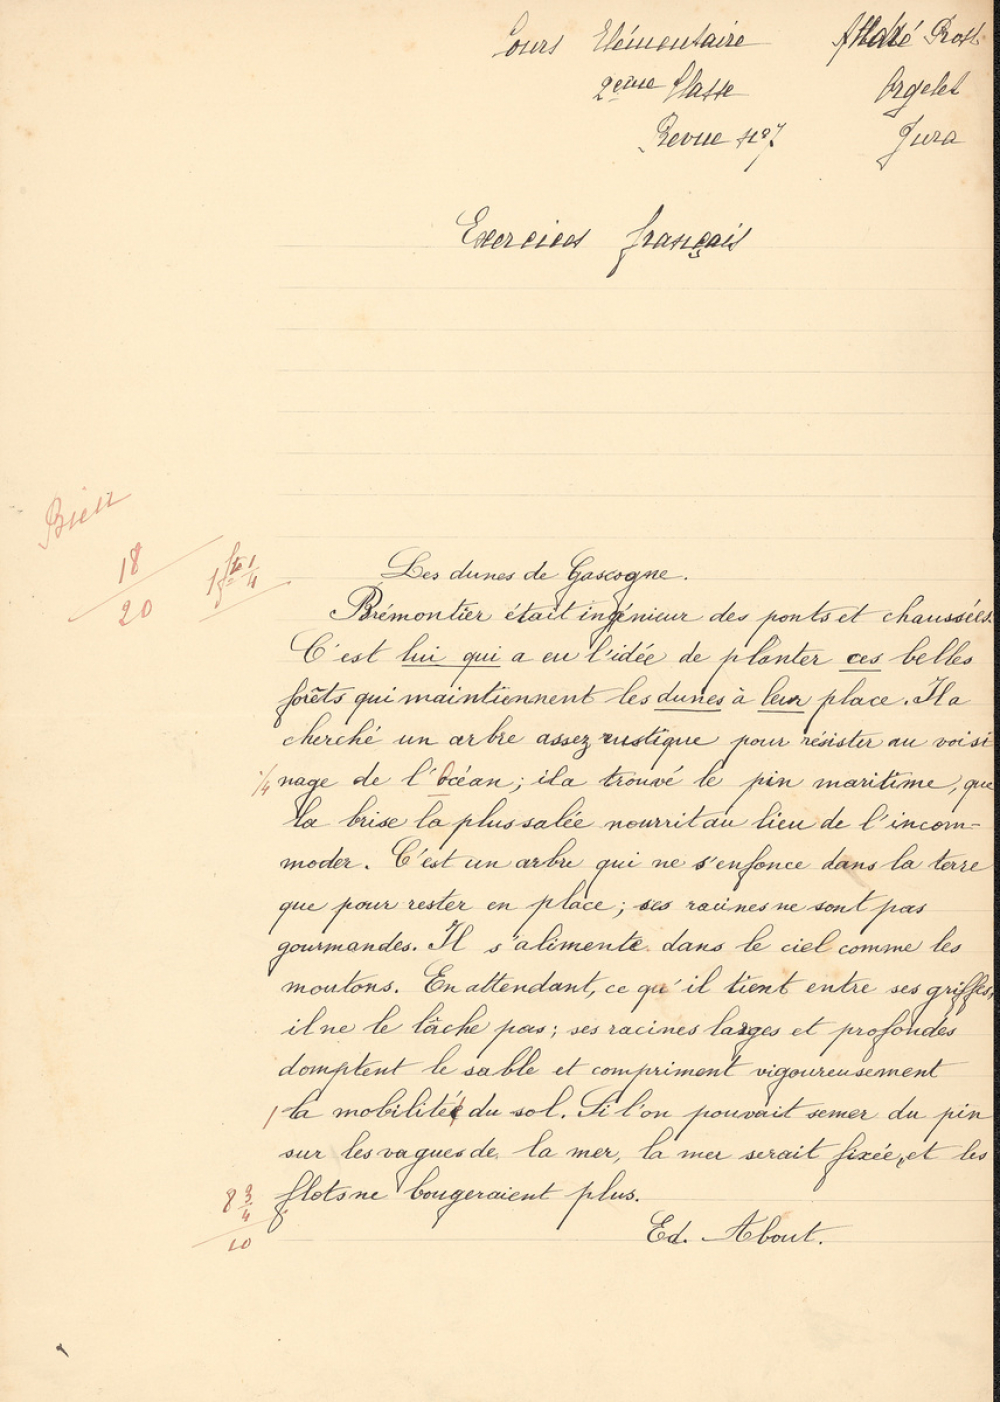 Cours Elémentaire André Prost
2ème Classe Orgelet
Revue n°7 Jura
Exercices français
Bien
18
20
1 fte 1/4
Les dunes de Gascogne.
Brémontier était ingénieur des ponts et chaussées.
C'est lui qui a eu l'idée de planter ces belles
forêts qui maintiennent les dunes à leur place. Il a
cherché un arbre assez rustique pour résister au voisi
1/4 nage de l'océan; il a trouvé le pin maritime, que
la brise la plus salée nourrit au lieu de l'incom-
moder. C'est un arbre qui ne s'enfonce dans la terre
que pour rester en place; ses racines ne sont pas
gourmandes. Il s'alimente dans le ciel comme les
moutons. En attendant, ce qu'il tient entre ses griffes,
il ne le lâche pas; ses racines larges et profondes
domptent le sable et compriment vigoureusement
1 la mobilitée du sol. Si l'on pouvait semer du pin
sur les vagues de la mer, la mer serait fixée, et les
8 3/4 flots ne bougeraient plus.
10
Ed. About.